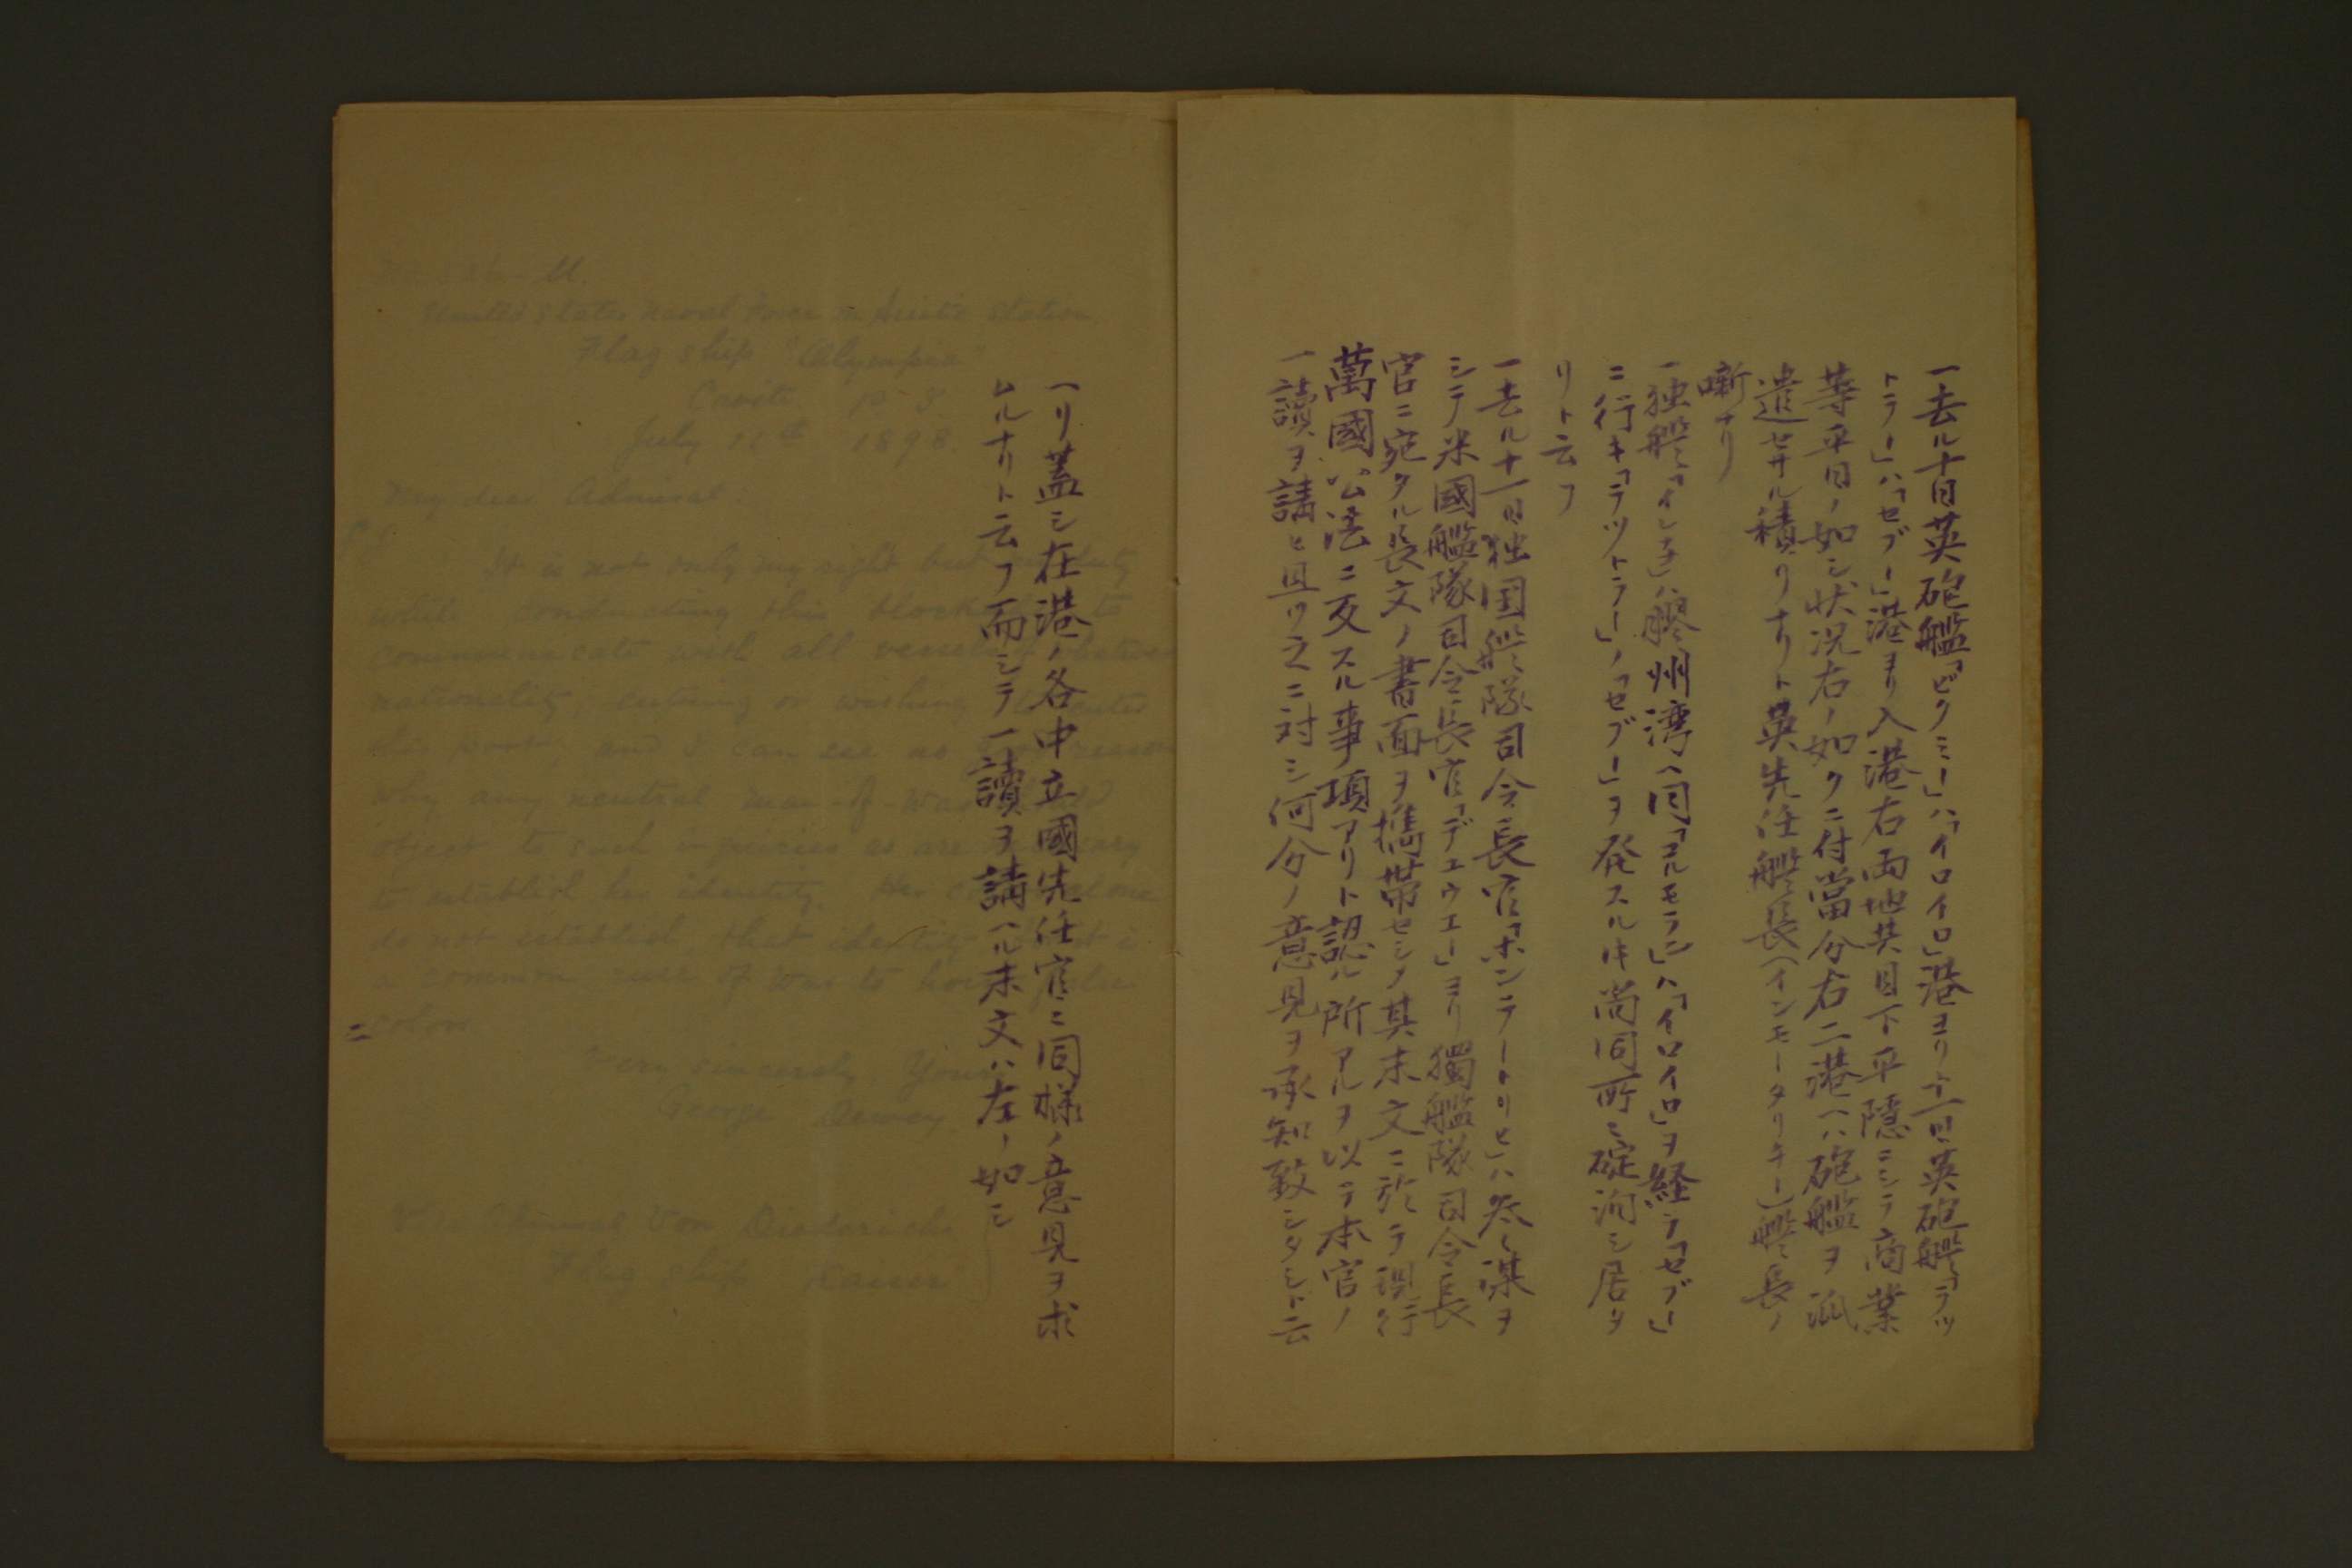 一去ル十日英砲艦「ピクミー」ハ「イロイロ」港ヨリ十一日英砲艦「ラッ
トラー」ハ「セブー」港ヨリ入港右両地共目下平隠ニシテ商業
等平日ノ如シ状況右ノ如クニ付當分右二港ヘハ砲艦ヲ派
遣セサル積リナリト英先任艦長(インモータリテー)艦長ノ
噺ナリ
一独艦「イレーネ」ハ膠州湾ヘ同「コルモラン」ハ「イロイロ」ヲ経テ「セブー」
ニ行キ「ラットラー」ノ「セブー」ヲ発スル片尚同所ニ碇泊シ居タ
リト云フ
一去ル十一日独国艦隊司令長官「ホンデートリヒ」ハ参謀ヲ
シテ米國艦隊司令長官「デュウエー」ヨリ獨艦隊司令長
官ニ宛タル長文ノ書面ヲ携帯セシメ其末文ニ於テ現行
萬國公法ニ反スル事項アリト認ル所アルヲ以テ本官ノ
一讀ヲ請ヒ且ツ之ニ対シ何分ノ意見ヲ承知致シタシト云
ヘリ蓋シ在港ノ各中立國先任官ニ同様ノ意見ヲ求
ムルナリト云フ而シテ一讀ヲ請ヘル末文ハ左ノ如シ
United States Naval Force on Asiatic Station,
Flag ship "Olympia"
Cavite P. I.
July 11th 1898.
My dear Admiral.
It is not only my right but duty
while conducting this to
communicate with all vessels
nationality, entering or wishing to enter
this port, and I can see no reason
why any neutral man-of-war
object to such inquiries as are
to establish her identity. Her alone
do not establish that identity
a common ruse of war to
colors
Very sincerely Yours
George Dewey
Vice Admiral Von Diederichs
Flag ship Kaiser
ニ